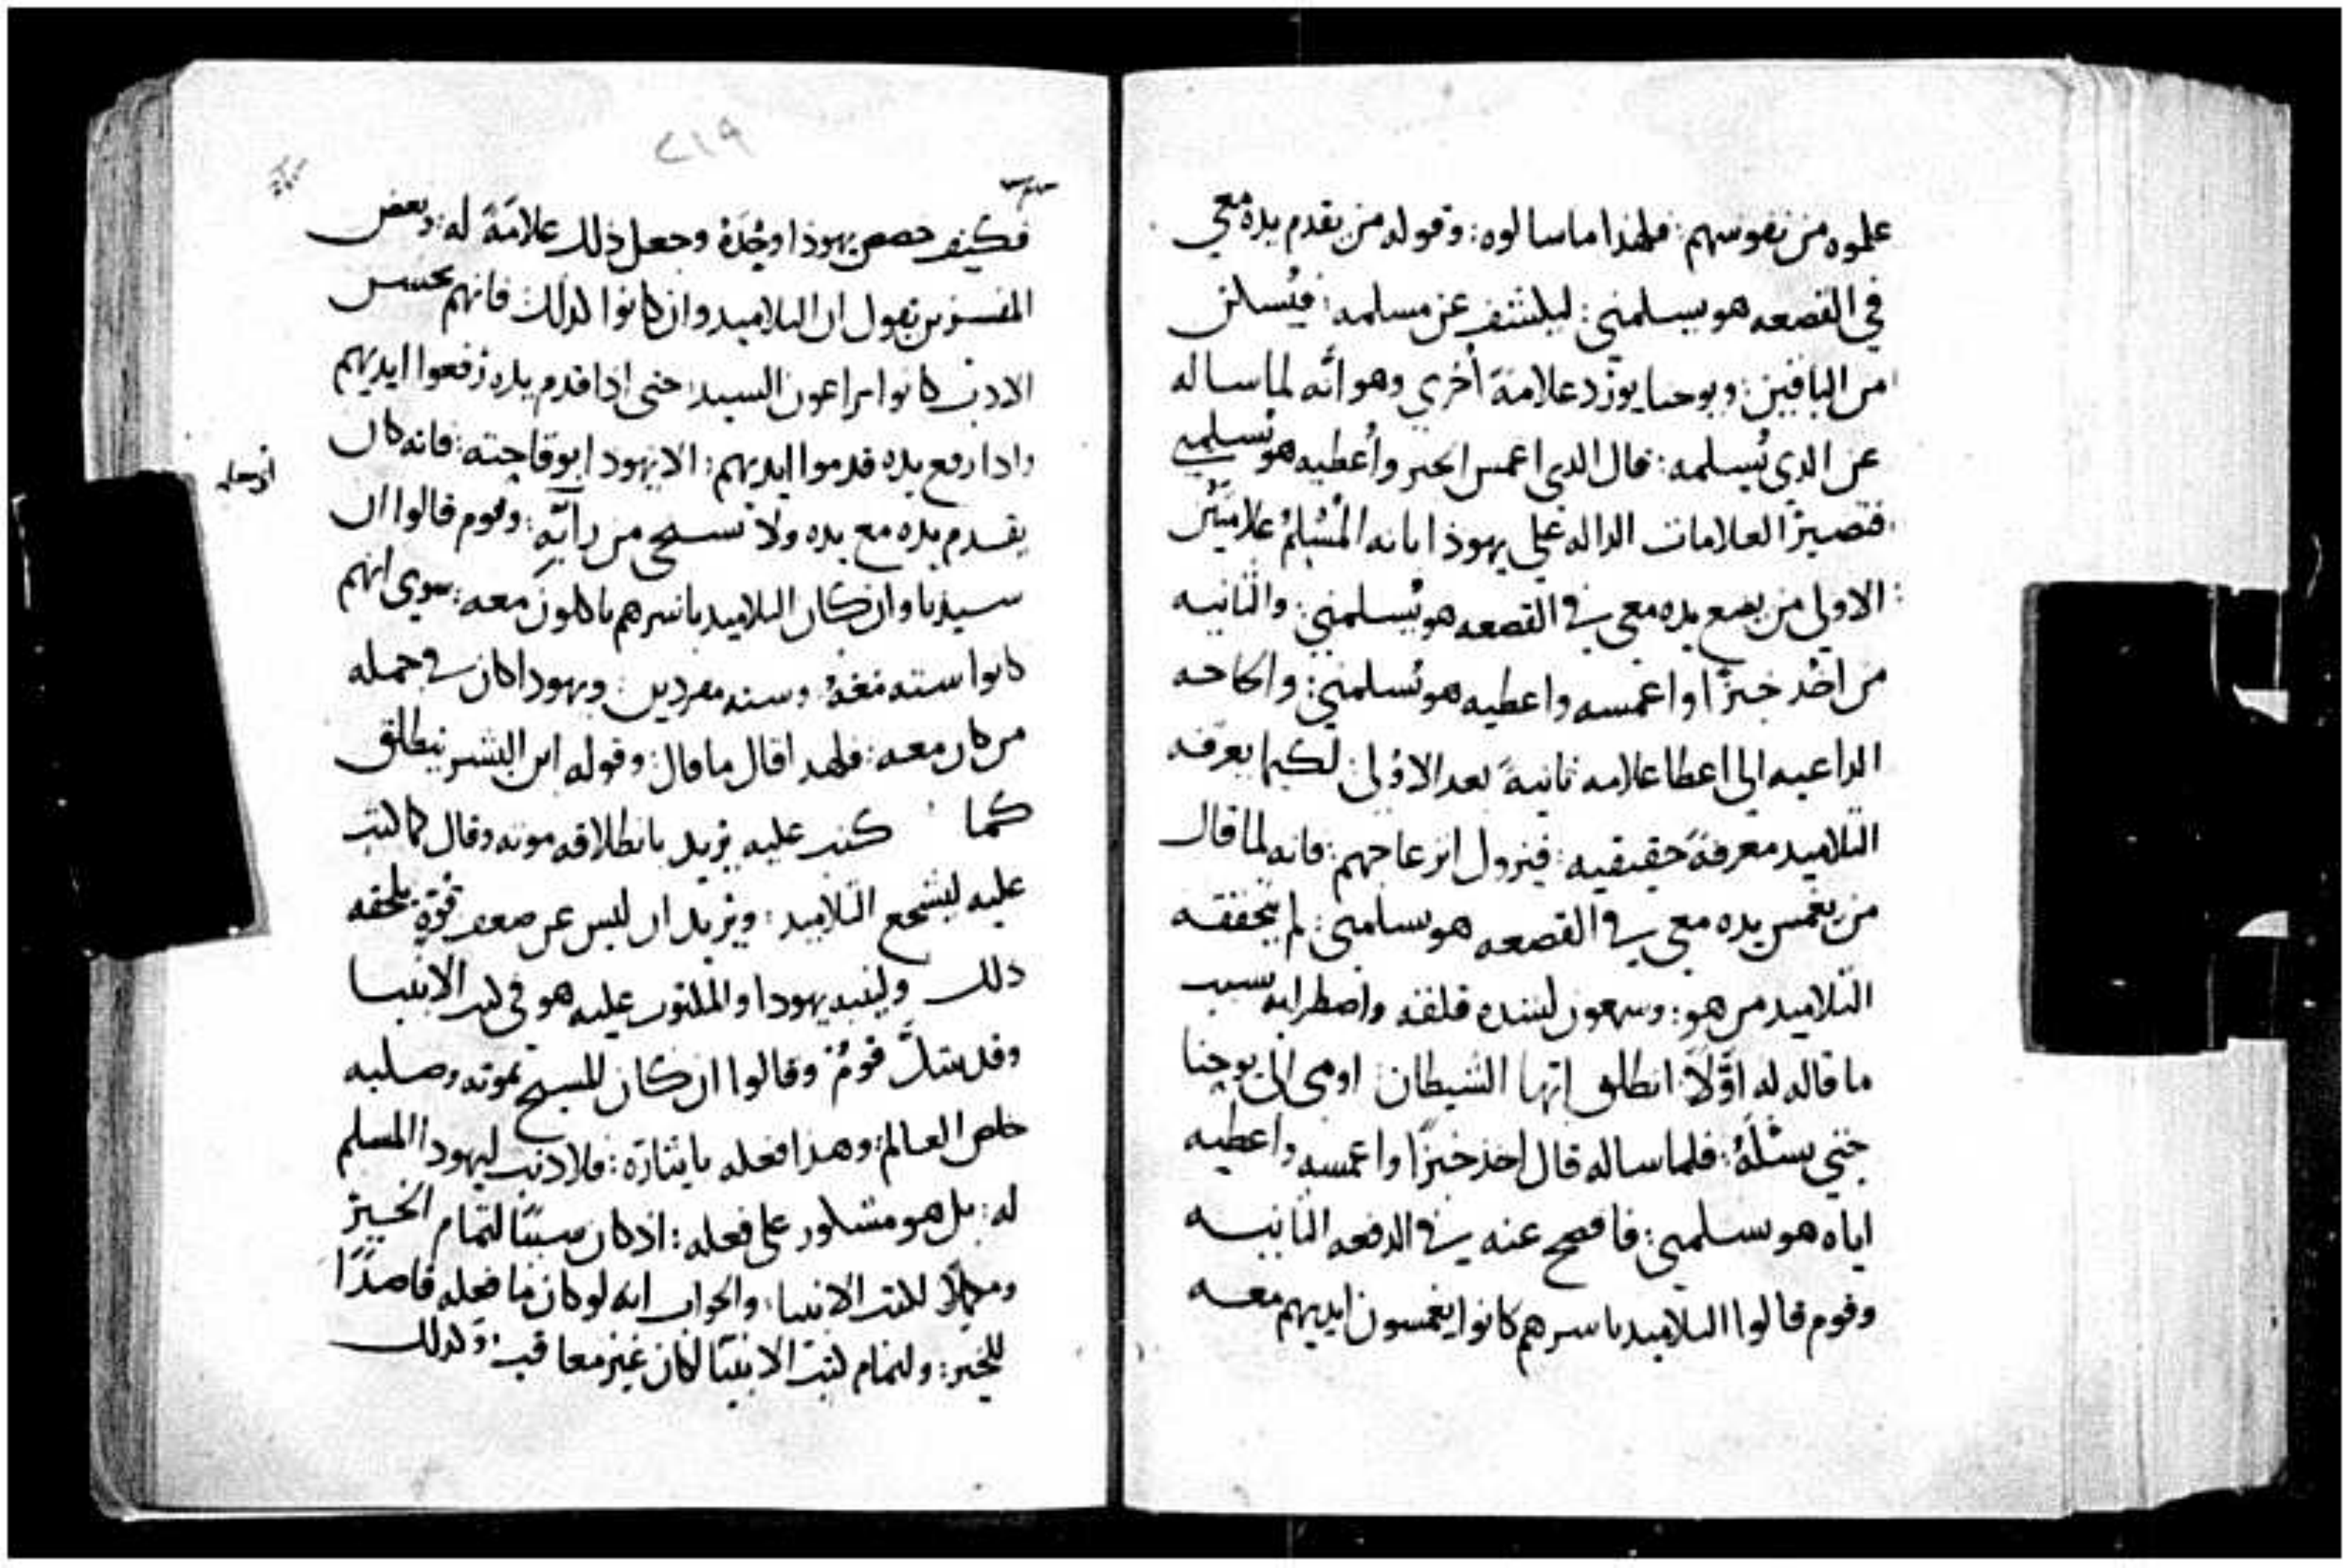 علموه من نفوسهم: فلهذا ما سالوه: وقوله من يقدم يده معي
في القصعه هو يسلمني: ليلشف عن مسلمه: فيُسلن
من الباقين: ويوحنا يورد علامةً أخري وهو انَّه لما ساله
عن الدي يُسلمه: قال الدي اغمس الخبز وأُعطيه هو يُسلمني
فتصير العلامات الداله علي يهوذا بانه المُسْلِمُ علامتَيْن
الاولي من يضع يده معي في القصعه هو يُسلمني: والثانيه
من اخُد خبزًا واغمسه واعطيه هو يُسلمني: والحاجه
الداعيه الي اعطا علامه ثانيةً بعد الاوُلي لكيما يعرفه
التلاميد معرفةً حقيقيه: فيزول انزعاجهم: فانه لما قال
من يغمس يده معي في القصعه هو يسلمني: لم يتحققه
التلاميد من هو: وسمعون لشده قلقه واضطرابه بسبب
ما قاله له اوَّلاً انطلق ايّها الشيطان اومي الي يوحنا
حتي يسْئلَهُ: فلما ساله قال اخذ خبزًا واغمسه واعطيه
اياه هو يسلمني: فافصح عنه في الدفعه الثانيه
وقوم قالوا التلاميد باسرهم كانوا يغمسون ايديهم معه
٢١٩
فكيف خصص يهوذا وحْدَهُ وجعل ذلك علامَةً له: وبعض
المفسرين يقول ان التلاميد وان كانوا كدلك فانهم بحسن
الادب كانوا يراعون السيد: حتى ادا قدم يده رفعوا ايديهم
وادا رفع يده قدموا ايديهم: الا يهودا بوقاحته: فانه كان
يقدم يده مع يده ولا يستحي من رأيه: وقوم قالوا ان
سيدنا وان كان التلاميد باسرهم ياكلون معه: سوي انهم
كانوا سته معَهُ: وسته مفردين: ويهودا كان في جمله
من كان معه: فلهدا قال ما قال: وقوله ابن البشر ينطلق
كما كتب عليه يريد بانطلاقه موته وقال كما كتب
عليه ليشجع التلاميد: ويريد ان ليس عن ضعف قوّةٍ يلحقه
دلك ولينبه يهودا والملتوب عليه هو في كتب الانبيا
وقد يشكّ قومٌ وقالوا ان كان المسيح بموته وصلبه
خلص العالم: وهدا فعله بايثارَه: فلا دنب ليهودا المسلم
له: بل هو مشكور على فعله: اذ كان سببًا لتمام الخير
ومكملًا لكتب الانبيا: والجواب انه لو كان ما فعله قاصدًا
للخير: ولتمام كتب الانبيا لكان غير معاقب: وكدلك